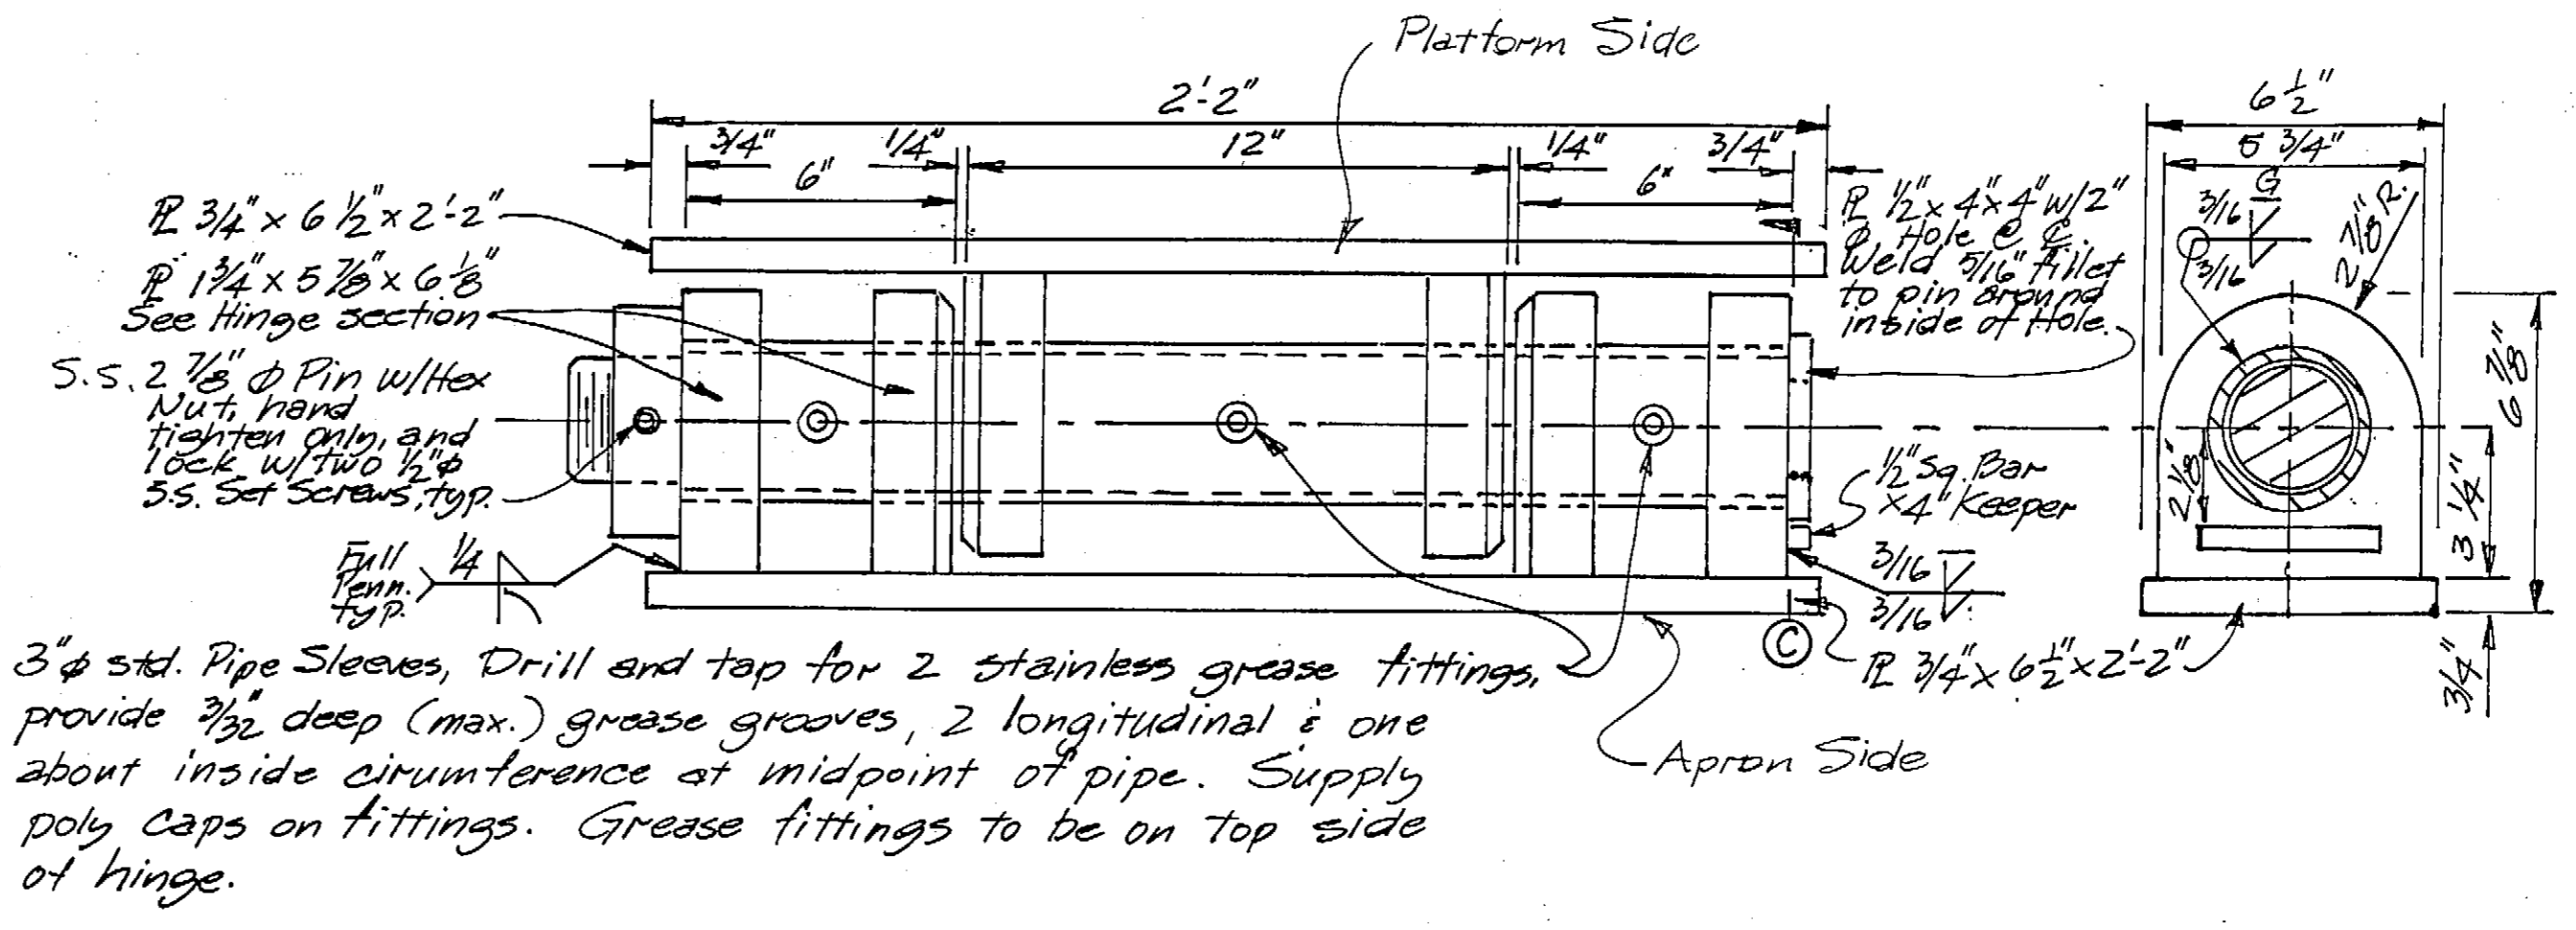 Platform Side
2'-2"
3/4"
1/4"
12"
1/4"
3/4"
6"
6"
PL 3/4" x 6 1/2" x 2'-2"
PL 1 3/4" x 5 7/8" x 6 1/8"
See Hinge section
S.S. 2 7/8" Ø Pin w/Hex
Nut, hand
tighten only, and
lock w/two 1/2" Ø
S.S. Set Screws, typ.
Full
Penn.
typ.
1/4
PL 1/2" x 4" x 4" w/2"
Ø Hole @ ℄.
Weld 5/16" fillet
to pin around
inside of Hole.
1/2" Sq. Bar
x4" Keeper
3/16
3/16
C
PL 3/4" x 6 1/2" x 2'-2"
Apron Side
6 1/2"
5 3/4"
G
3/16
3/16
2 7/8" R.
6 7/8"
2 1/8"
3 1/4"
3/4"
3" Ø std. Pipe Sleeves, Drill and tap for 2 stainless grease fittings,
provide 3/32" deep (max.) grease grooves, 2 longitudinal & one
about inside cirumference at midpoint of pipe. Supply
poly caps on fittings. Grease fittings to be on top side
of hinge.